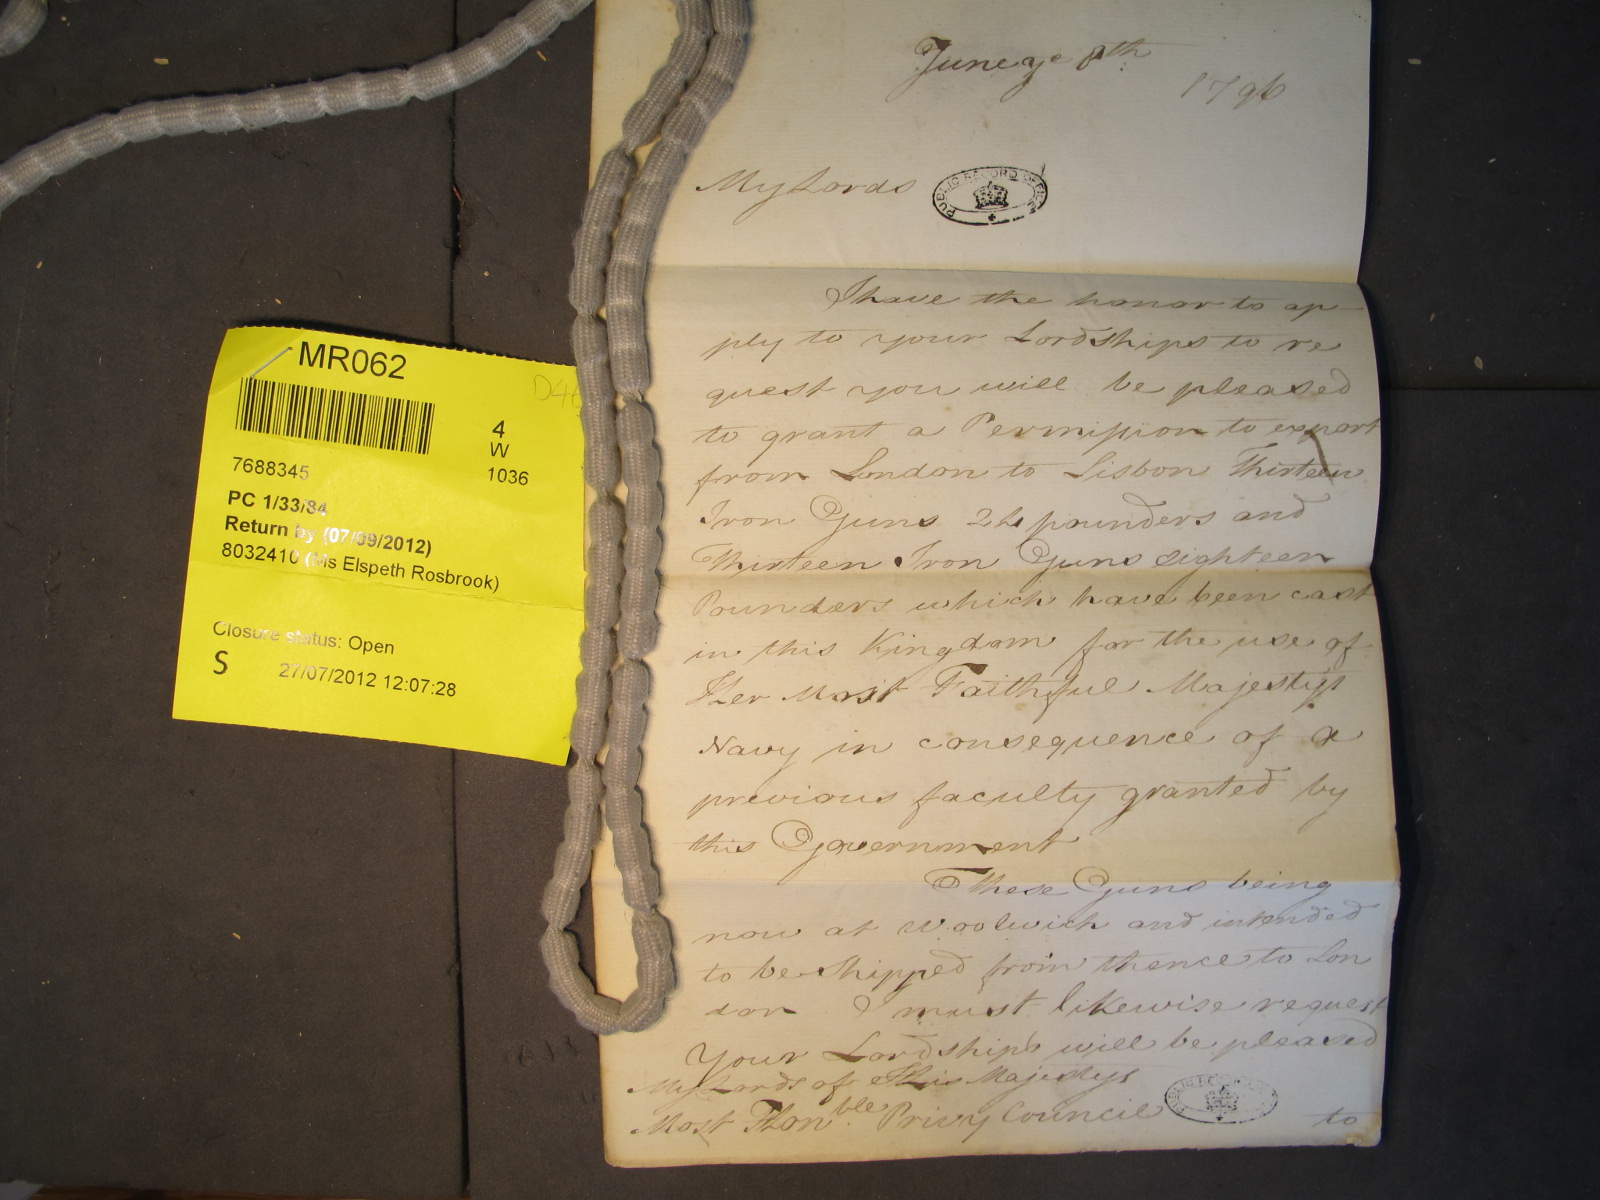 MR062
D46
4
W
1036
7688345
PC 1/33/84
Return by (07/09/2012)
8032410 (Ms Elspeth Rosbrook)
Closure status: Open
S 27/07/2012 12:07:28
June ye 8th
1796
My Lords
PUBLIC RECORD OFFICE
I have the honor to ap
ply to your Lordships to re
quest you will be pleased
to grant a Permission to export
from London to Lisbon Thirteen
Iron Guns 24 pounders and
Thirteen Iron Guns eighteen
Pounders which have been cast
in this Kingdom for the use of
Her Most Faithful Majestys
Navy in consequence of a
previous faculty granted by
this Government
These Guns being
now at Woolwich and intended
to be shipped from thence to Lon
don I must likewise request
Your Lordships will be pleased
My Lords of His Majestys
Most Honble Privy Council
PUBLIC RECORD OFFICE
to